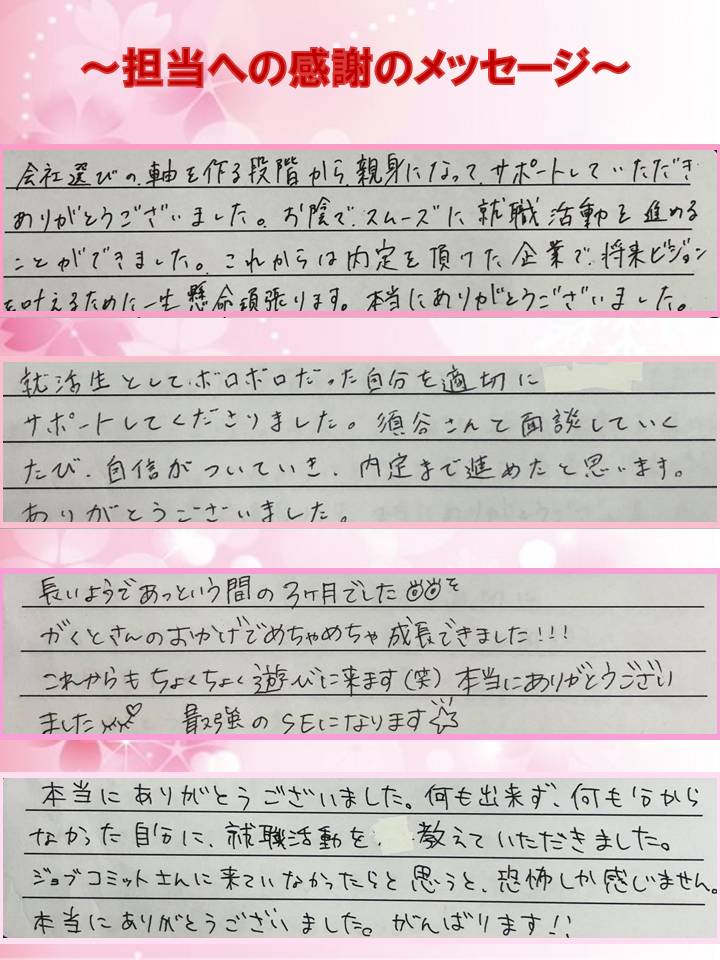 ～担当への感謝のメッセージ～
会社選びの軸を作る段階から、親身になって、サポートしていただき
ありがとうございました。お陰で、スムーズに就職活動を進める
ことができました。これからは内定を頂けた企業で、将来ビジョン
を叶えるために一生懸命頑張ります。本当にありがとうございました。
就活生としてボロボロだった自分を適切に
サポートしてくださりました。須谷さんと面談していく
たび、自信がついていき、内定まで進めたと思います。
ありがとうございました。
長いようであっという間の3ヶ月でした
がくとさんのおかげでめちゃめちゃ成長できました!!!
これからもちょくちょく遊びに来ます(笑)本当にありがとうござい
ました 最強のSEになります
本当にありがとうございました。何も出来ず、何も分から
なかった自分に、就職活動を、教えていただきました。
ジョブコミットさんに来ていなかったらと思うと、恐怖しか感じません。
本当にありがとうございました。がんばります!!